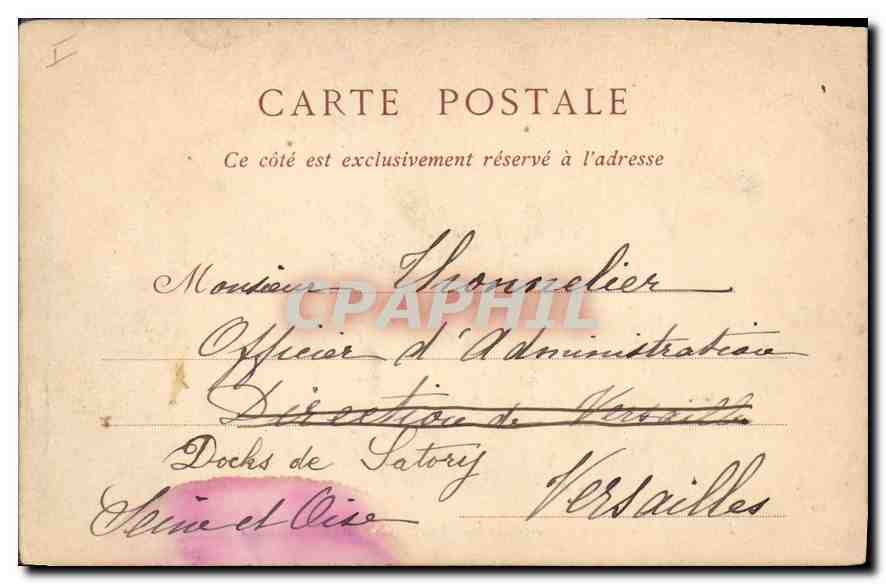 I
CARTE POSTALE
Ce côté est exclusivement réservé à l'adresse
Monsieur Thonnelier
CPAPHIL
Officier d'Administration
Direction de Versailles
Docks de Satory
Versailles
Seine et Oise